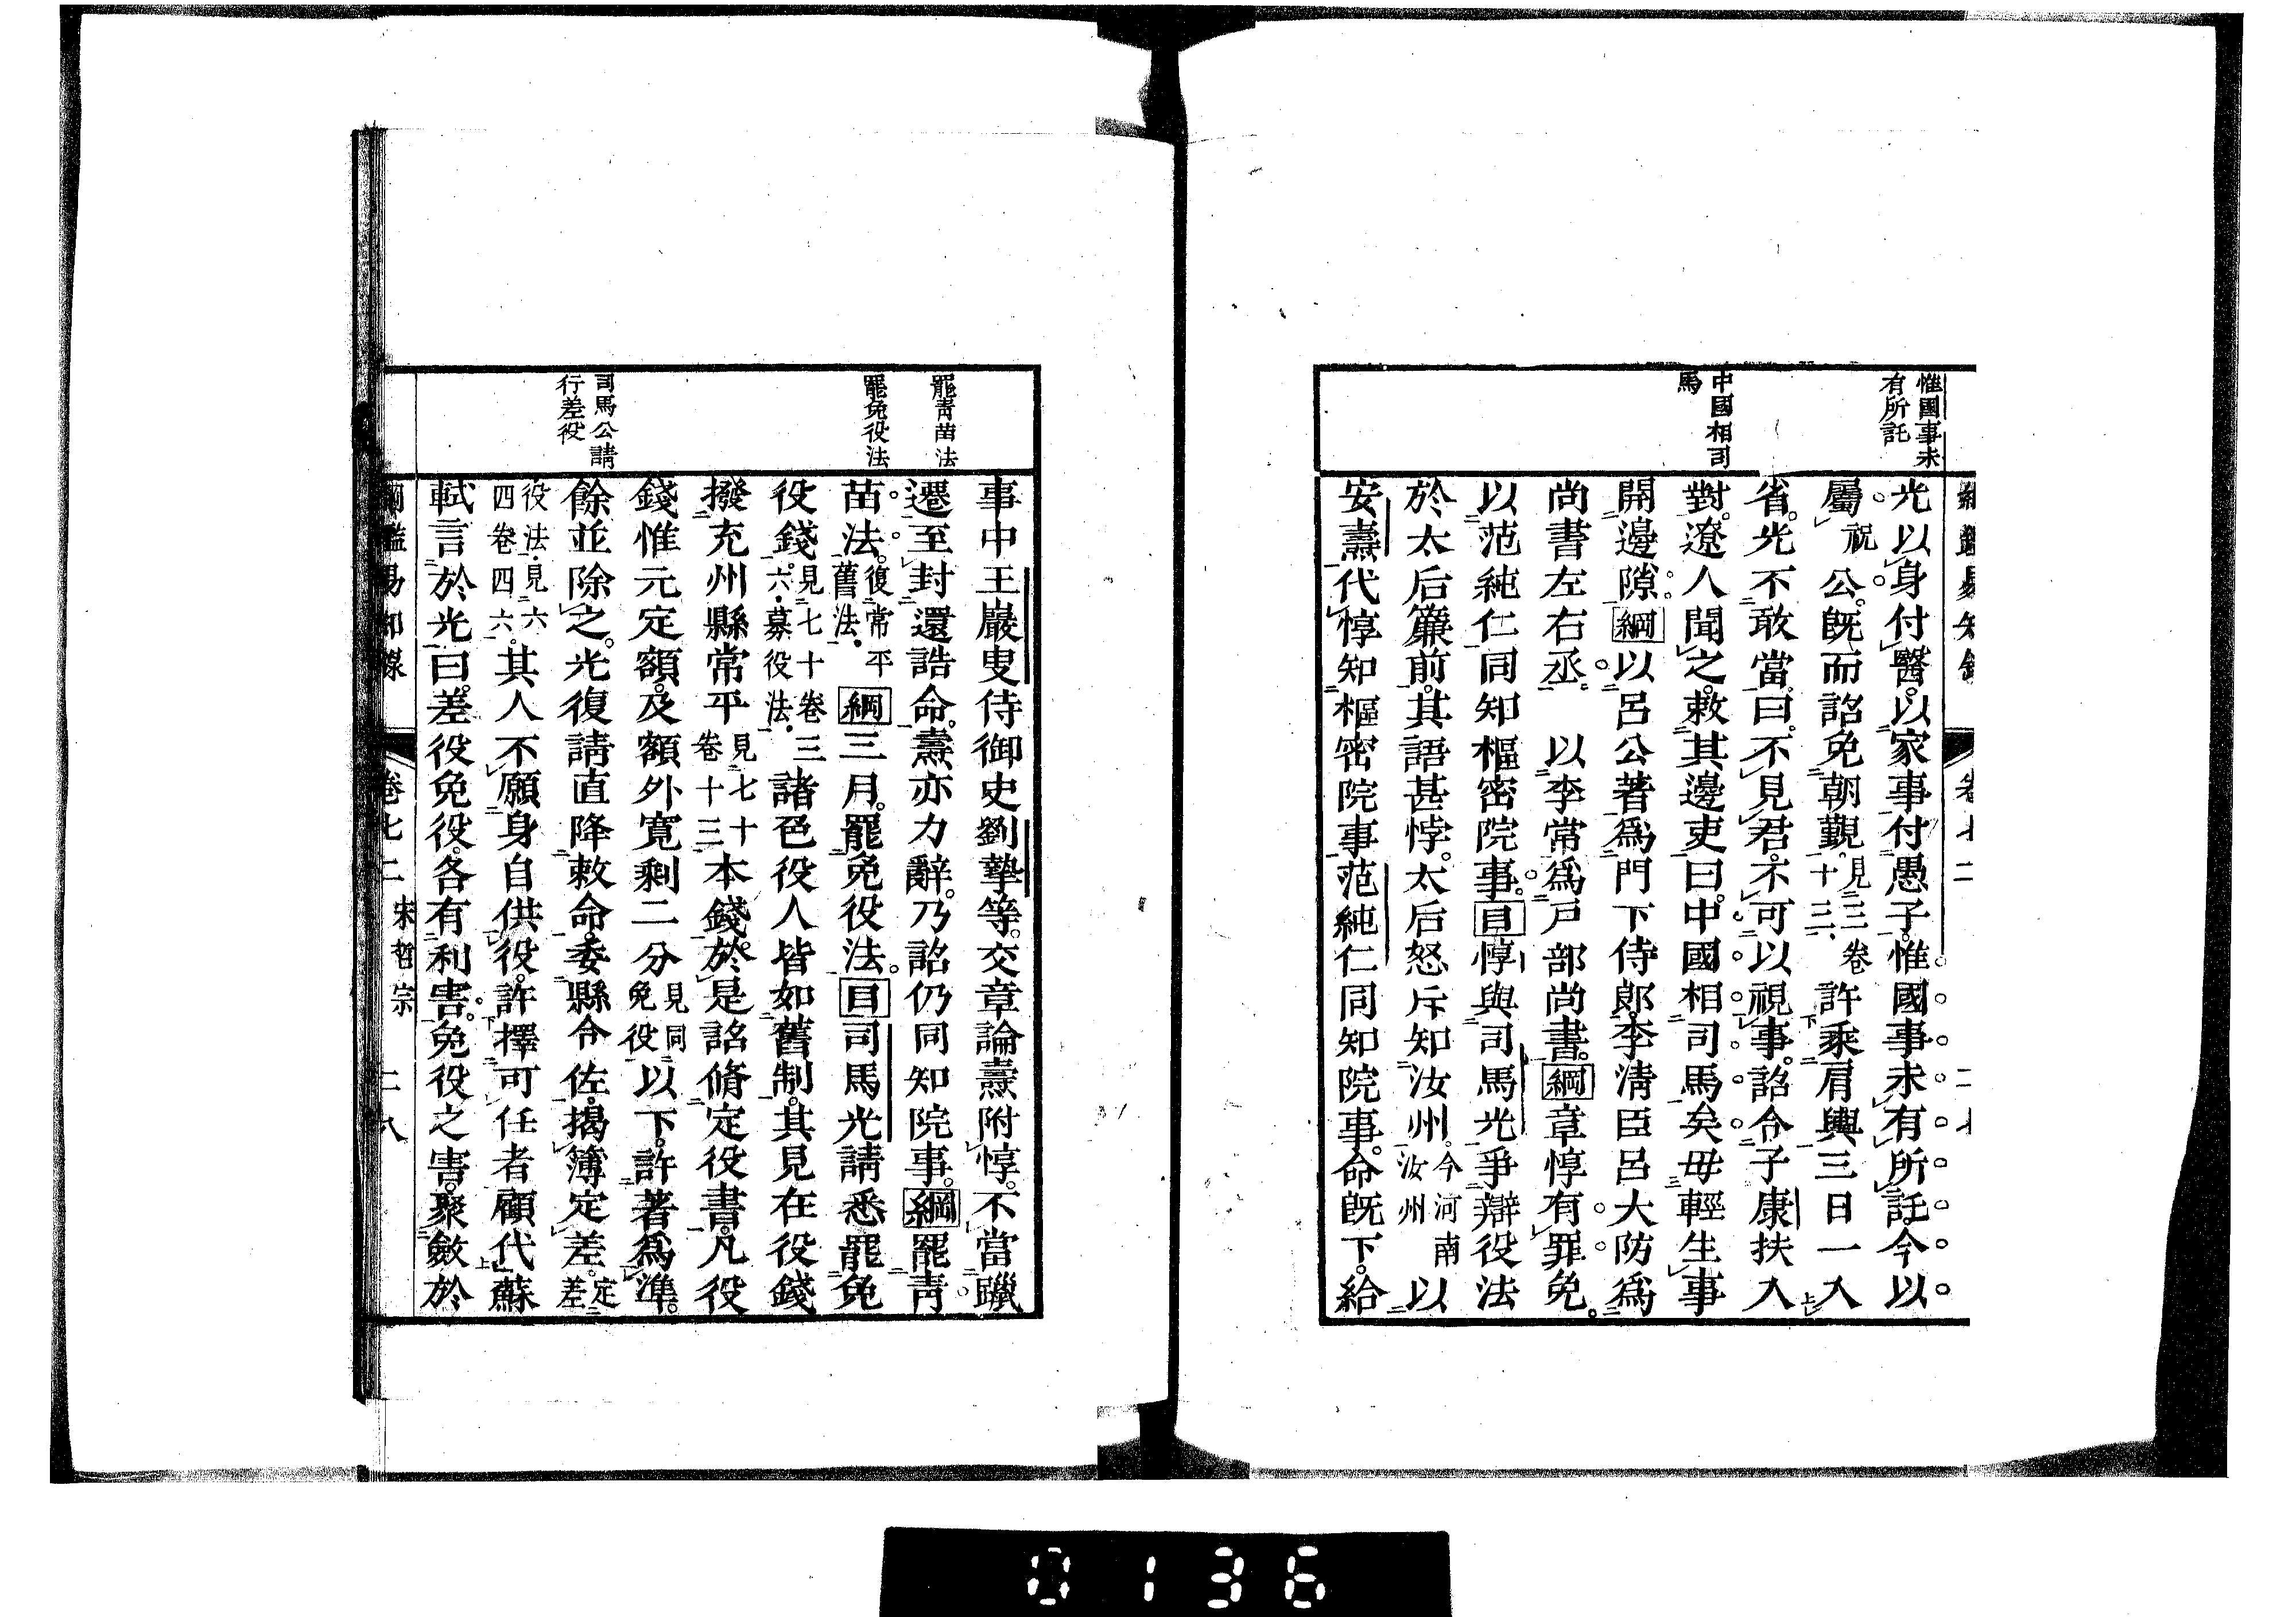 惟國事未
有所託
中國相司
馬
綱鑑易知錄 卷七二 二七
光以身付醫。以家事付愚子。惟國事未有所託。今以
屬 祝 公。既而詔免朝覲。見三卷十三、許乘肩輿三日一入
省。光不敢當。曰。不見君。不可以視事。詔令子康扶入
對。遼人聞之。敕其邊吏曰。中國相司馬矣。毋輕生事
開邊隙。綱以呂公著爲門下侍郎。李淸臣呂大防爲
尚書左右丞。以李常爲戶部尚書。綱章惇有罪免。
以范純仁同知樞密院事。目惇與司馬光爭辯役法
於太后簾前。其語甚悖。太后怒斥知汝州。今河南汝州 以
安燾代惇知樞密院事范純仁同知院事。命旣下。給
罷靑苗法
罷免役法
司馬公請
行差役
事中王巖叟侍御史劉摯等。交章論燾附惇。不當躐
遷至封還誥命。燾亦力辭。乃詔仍同知院事。綱罷靑
苗法。復常平舊法・綱三月。罷免役法。目司馬光請悉罷免
役錢。見七十卷三六・募役法・諸色役人皆如舊制。其見在役錢
撥充州縣常平見七十卷十三本錢。於是詔脩定役書。凡役
錢惟元定額。及額外寬剩二分見同免役以下。許著爲準。
餘並除之。光復請直降敕命。委縣令佐。揭簿定差。定差
役法・見六四卷四六。其人不願身自供役。許擇可任者顧代蘇
軾言於光曰。差役免役。各有利害。免役之害。聚斂於
綱鑑易知錄 卷七二 宋哲宗 二八
0136